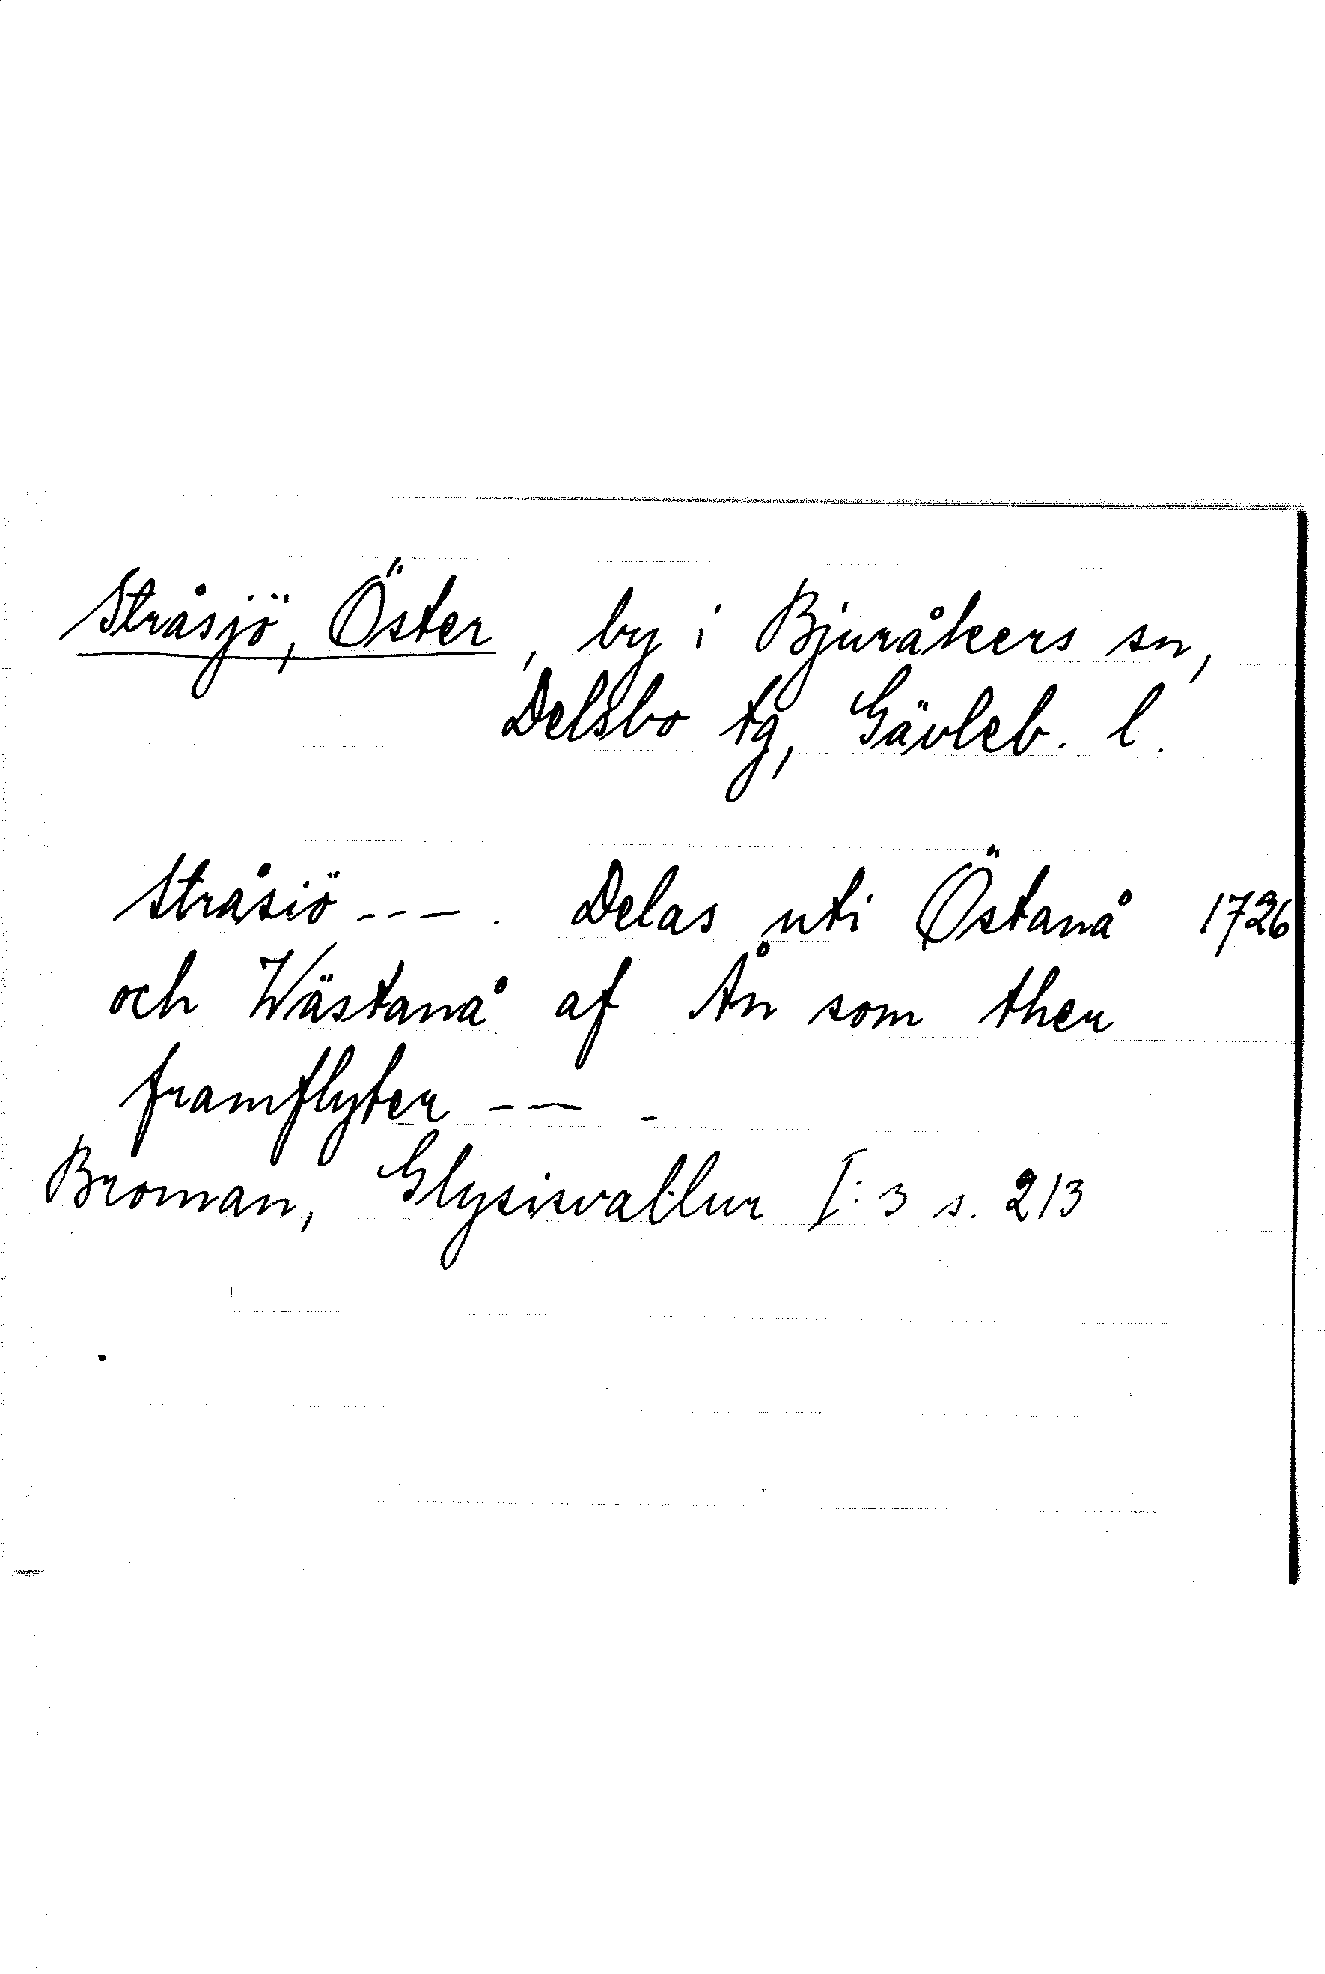 Stråsjö, Öster, by i Bjuråkers sn,
Delsbo tg, Gävleb. l.
Stråsiö ---. Delas uti Östanå 1726
och Wästanå af Ån som ther
framflyter --- .
Broman, Glysisvallur I:3 s. 213